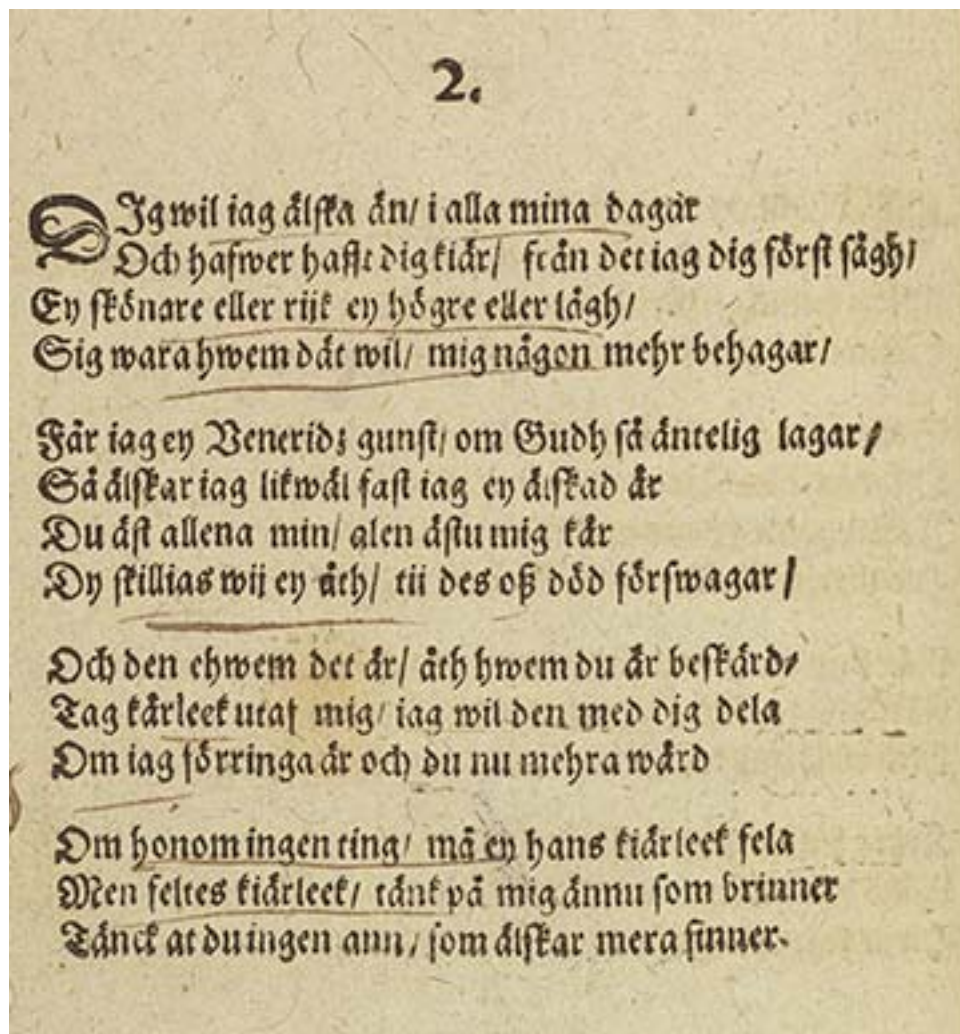 2.
DIg wil iag älska än/ i alla mina dagar
Och hafwer hafft dig kiär/ från det iag dig först sågh/
Ey skönare eller rijk ey högre eller lågh/
Sig wara hwem dät wil/ mig någon mehr behagar/
Får iag ey Veneridz gunst/ om Gudh så äntelig lagar/
Så älskar iag likwäl fast iag ey älskad är
Du äst allena min/ alen ästu mig kär
Dy skillias wij ey åth/ tii des oß död förswagar/
Och den ehwem det är/ åth hwem du är beskärd/
Tag kärleek utaf mig/ iag wil den med dig dela
Om iag förringa är och du nu mehra wärd
Om honom ingen ting/ må ey hans kiärleek fela
Men feltes kiärleek/ tänk på mig ännu som brinner
Tänck at du ingen ann/ som älskar mera finner.